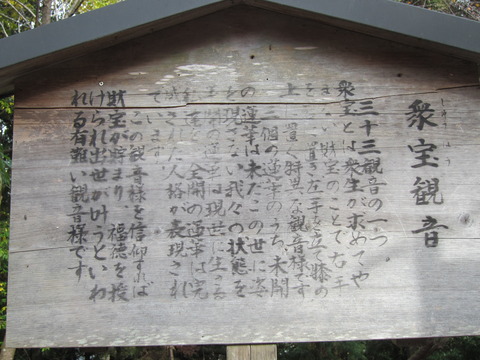 衆宝観音
三十三観音の一つ。
衆宝とは衆生が求めてや
まない財宝のことで右手
を 置き左手を立て膝の
上 置く特異な観音様です
三個の蓮華のうち未開
の蓮華は未だこの世に姿
を現さない我々の状態を
半開の蓮華は現世に生きる
全開の蓮華は完
成された人格が表現され
ています。
この観音様を信仰すれば
財宝が貯まり 福徳を授
けられ出世が叶うといわ
れる有難い観音様です。